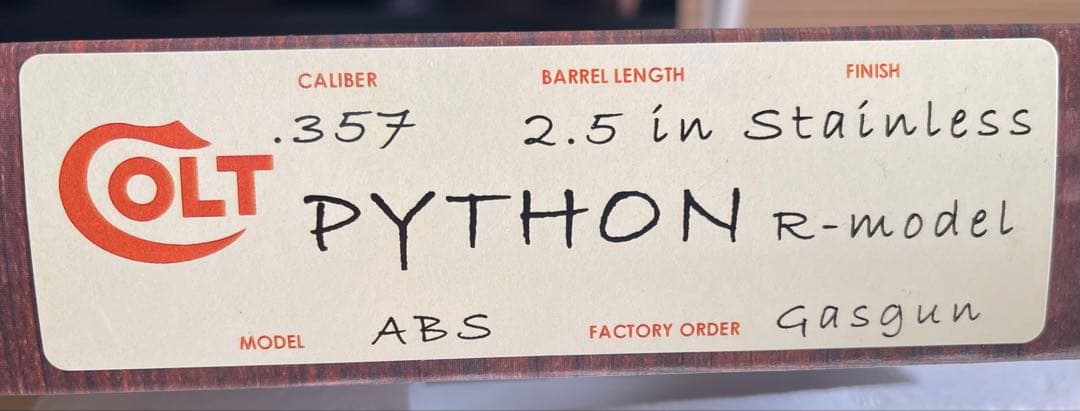 CALIBER BARREL LENGTH FINISH
.357 2.5 in Stainless
COLT PYTHON R-model
MODEL ABS FACTORY ORDER Gasgun